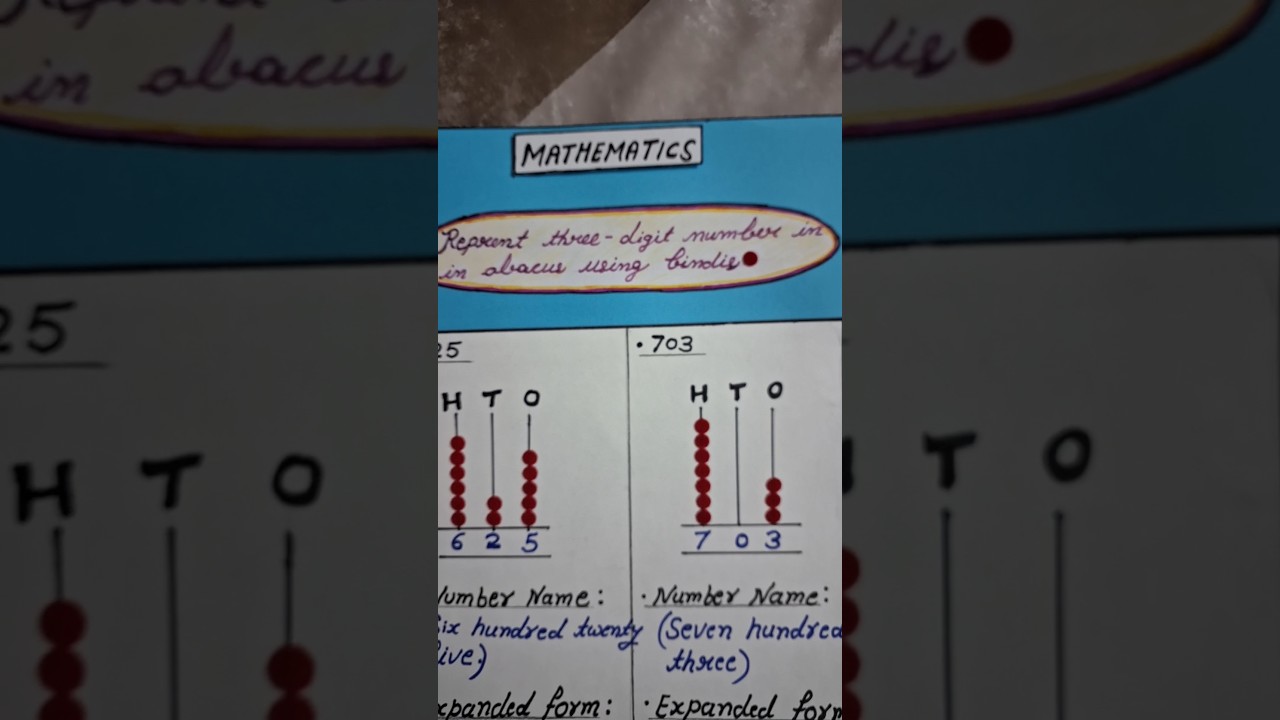 MATHEMATICS
Reprent three-digit number in
in abacus using bindis
25
H T O
6 2 5
Number Name:
Six hundred twenty
five)
Expanded form:
703
H T O
7 0 3
Number Name:
(Seven hundred
three)
Expanded form